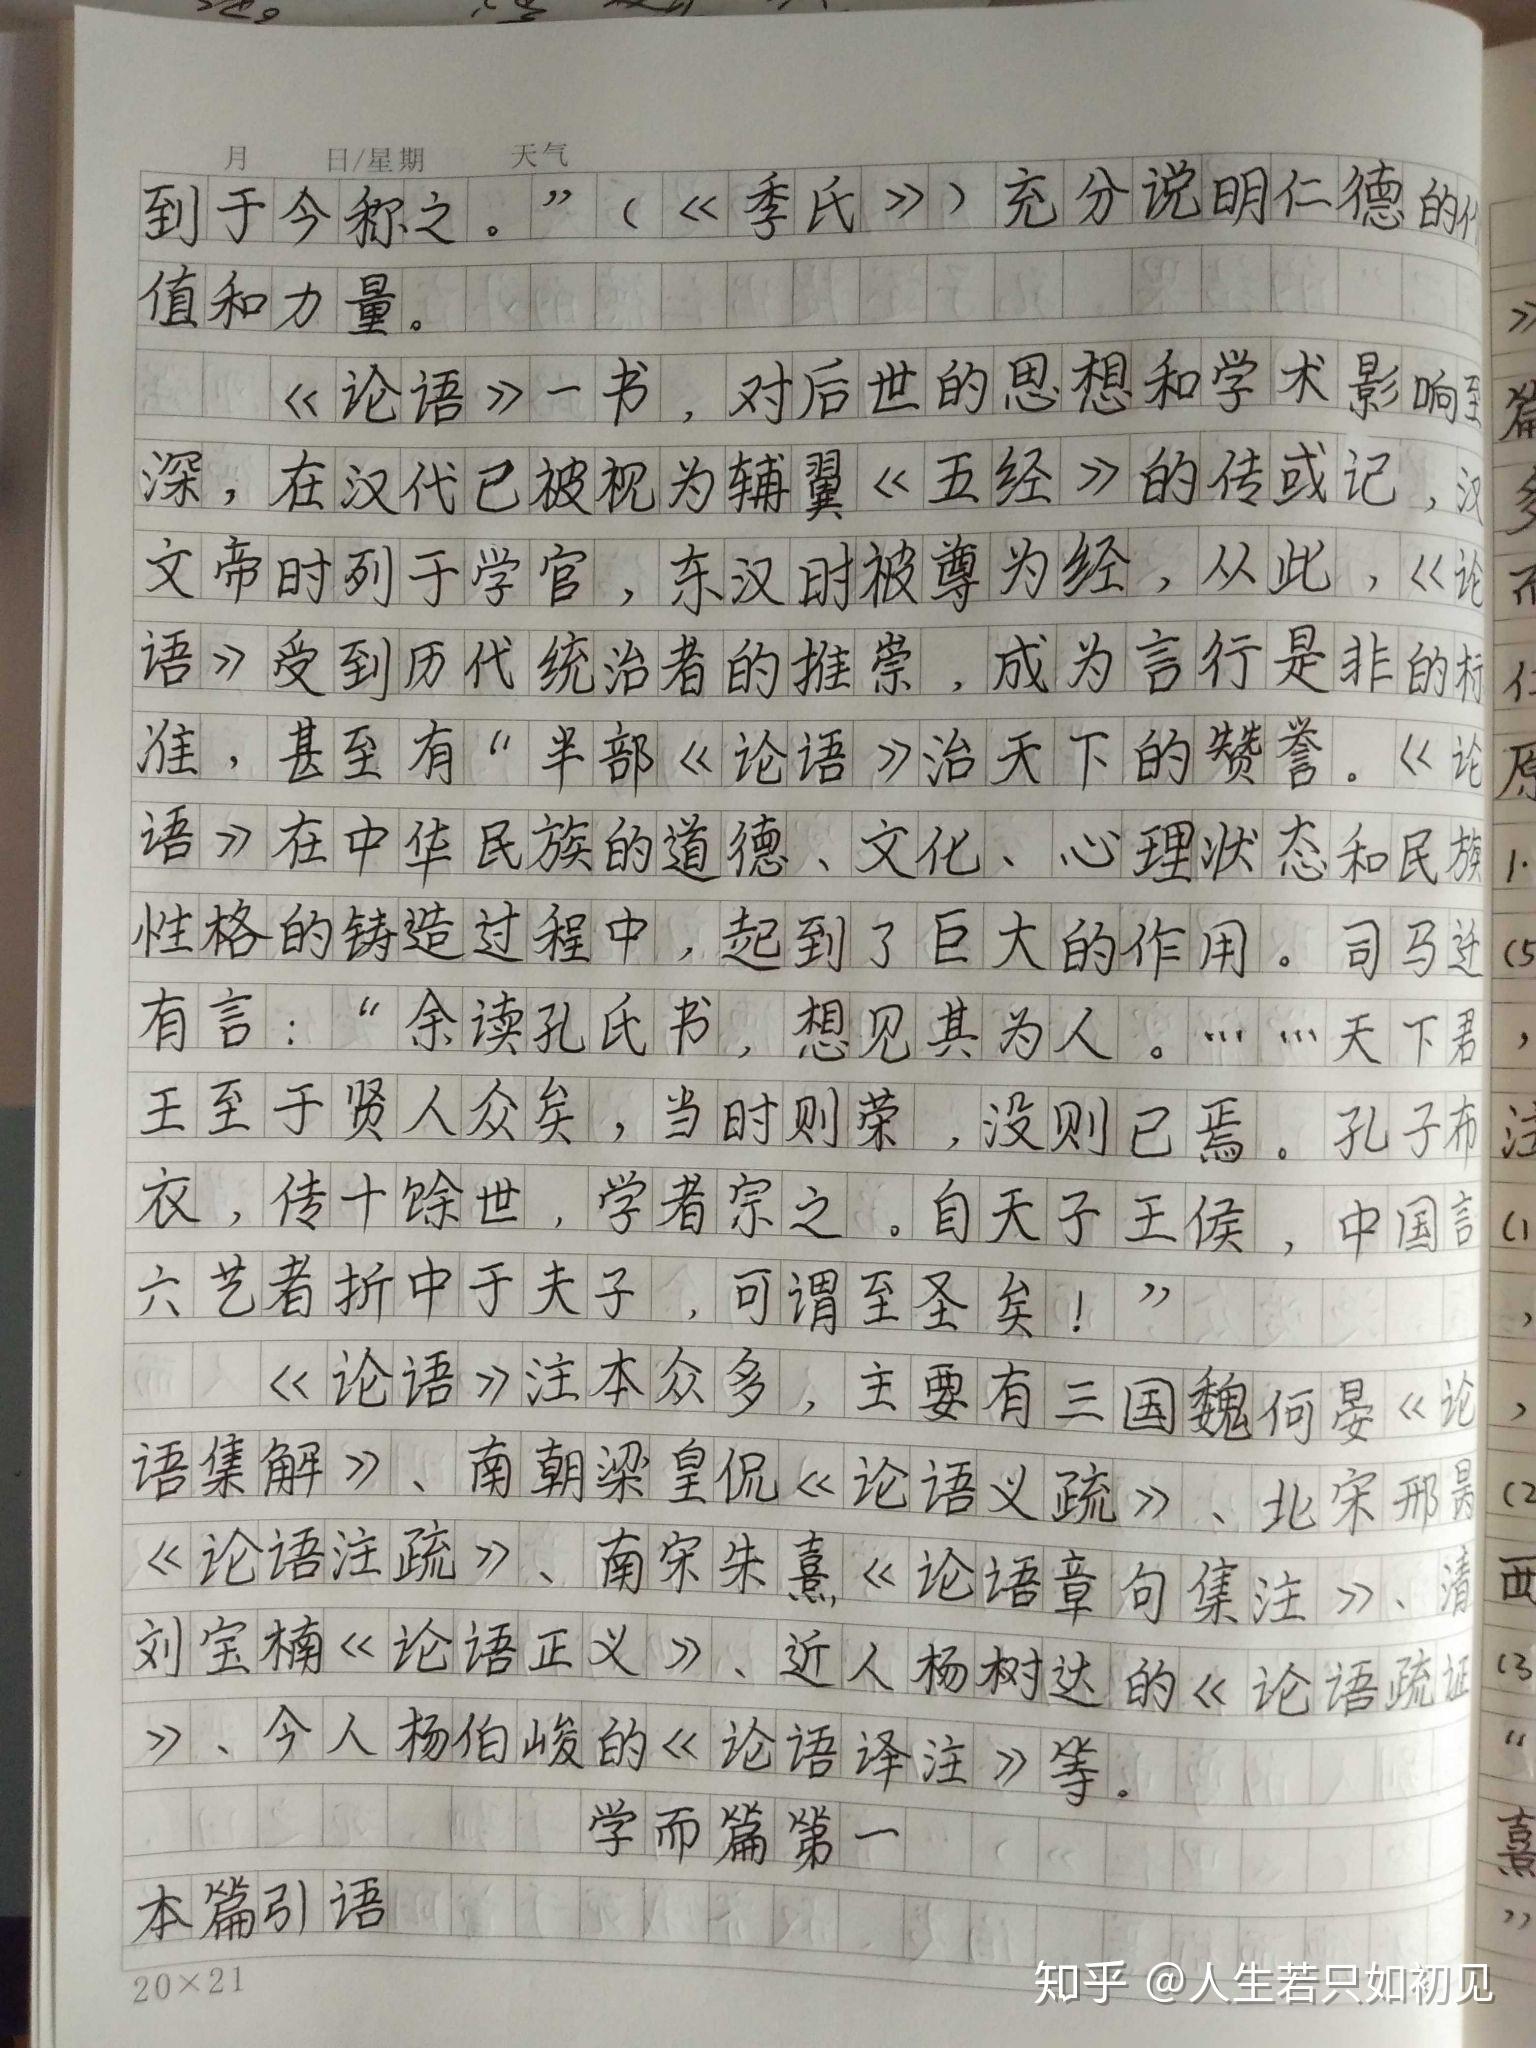 月 日/星期 天气
到于今称之。”(《季氏》)充分说明仁德的
值和力量。
《论语》一书,对后世的思想和学术影响至
深,在汉代已被视为辅翼《五经》的传或记,汉
文帝时列于学官,东汉时被尊为经,从此,《论
语》受到历代统治者的推崇,成为言行是非的标
准,甚至有“半部《论语》治天下的赞誉。《论
语》在中华民族的道德、文化、心理状态和民族
性格的铸造过程中,起到了巨大的作用。司马迁
有言:“余读孔氏书,想见其为人。……天下君
王至于贤人众矣,当时则荣,没则已焉。孔子布
衣,传十馀世,学者宗之。自天子王侯,中国言
六艺者折中于夫子,可谓至圣矣!”
《论语》注本众多,主要有三国魏何晏《论
语集解》、南朝梁皇侃《论语义疏》、北宋邢昺
《论语注疏》、南宋朱熹《论语章句集注》、清
刘宝楠《论语正义》、近人杨树达的《论语疏证
》、今人杨伯峻的《论语译注》等。
学而篇第一
本篇引语
20×21
知乎 @人生若只如初见